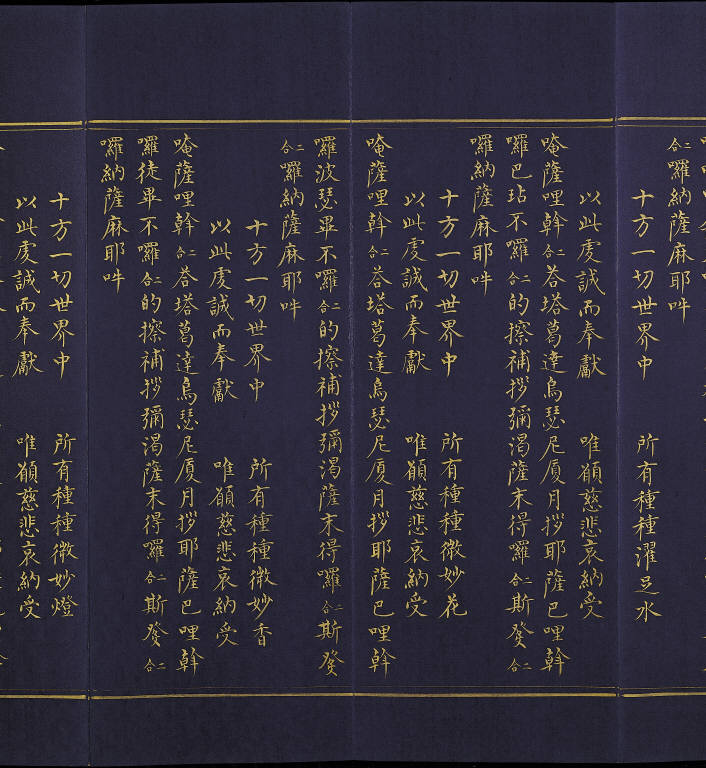 二合囉納薩麻耶吽
十方一切世界中　所有種種濯足水
以此虔誠而奉獻　唯願慈悲哀納受
唵薩哩幹二合荅塔葛達烏瑟尼厦月拶耶薩巴哩幹
囉巴玷不囉二合的擦補拶彌渴薩末得囉二合斯發二合
囉納薩麻耶吽
十方一切世界中　所有種種微妙花
以此虔誠而奉獻　唯願慈悲哀納受
唵薩哩幹二合荅塔葛達烏瑟尼厦月拶耶薩巴哩幹
囉波瑟畢不囉二合的擦補拶彌渴薩末得囉二合斯發
二合囉納薩麻耶吽
十方一切世界中　所有種種微妙香
以此虔誠而奉獻　唯願慈悲哀納受
唵薩哩幹二合荅塔葛達烏瑟尼厦月拶耶薩巴哩幹
囉徒畢不囉二合的擦補拶彌渴薩末得囉二合斯發二合
囉納薩麻耶吽
十方一切世界中　所有種種微妙燈
以此虔誠而奉獻　唯願慈悲哀納受